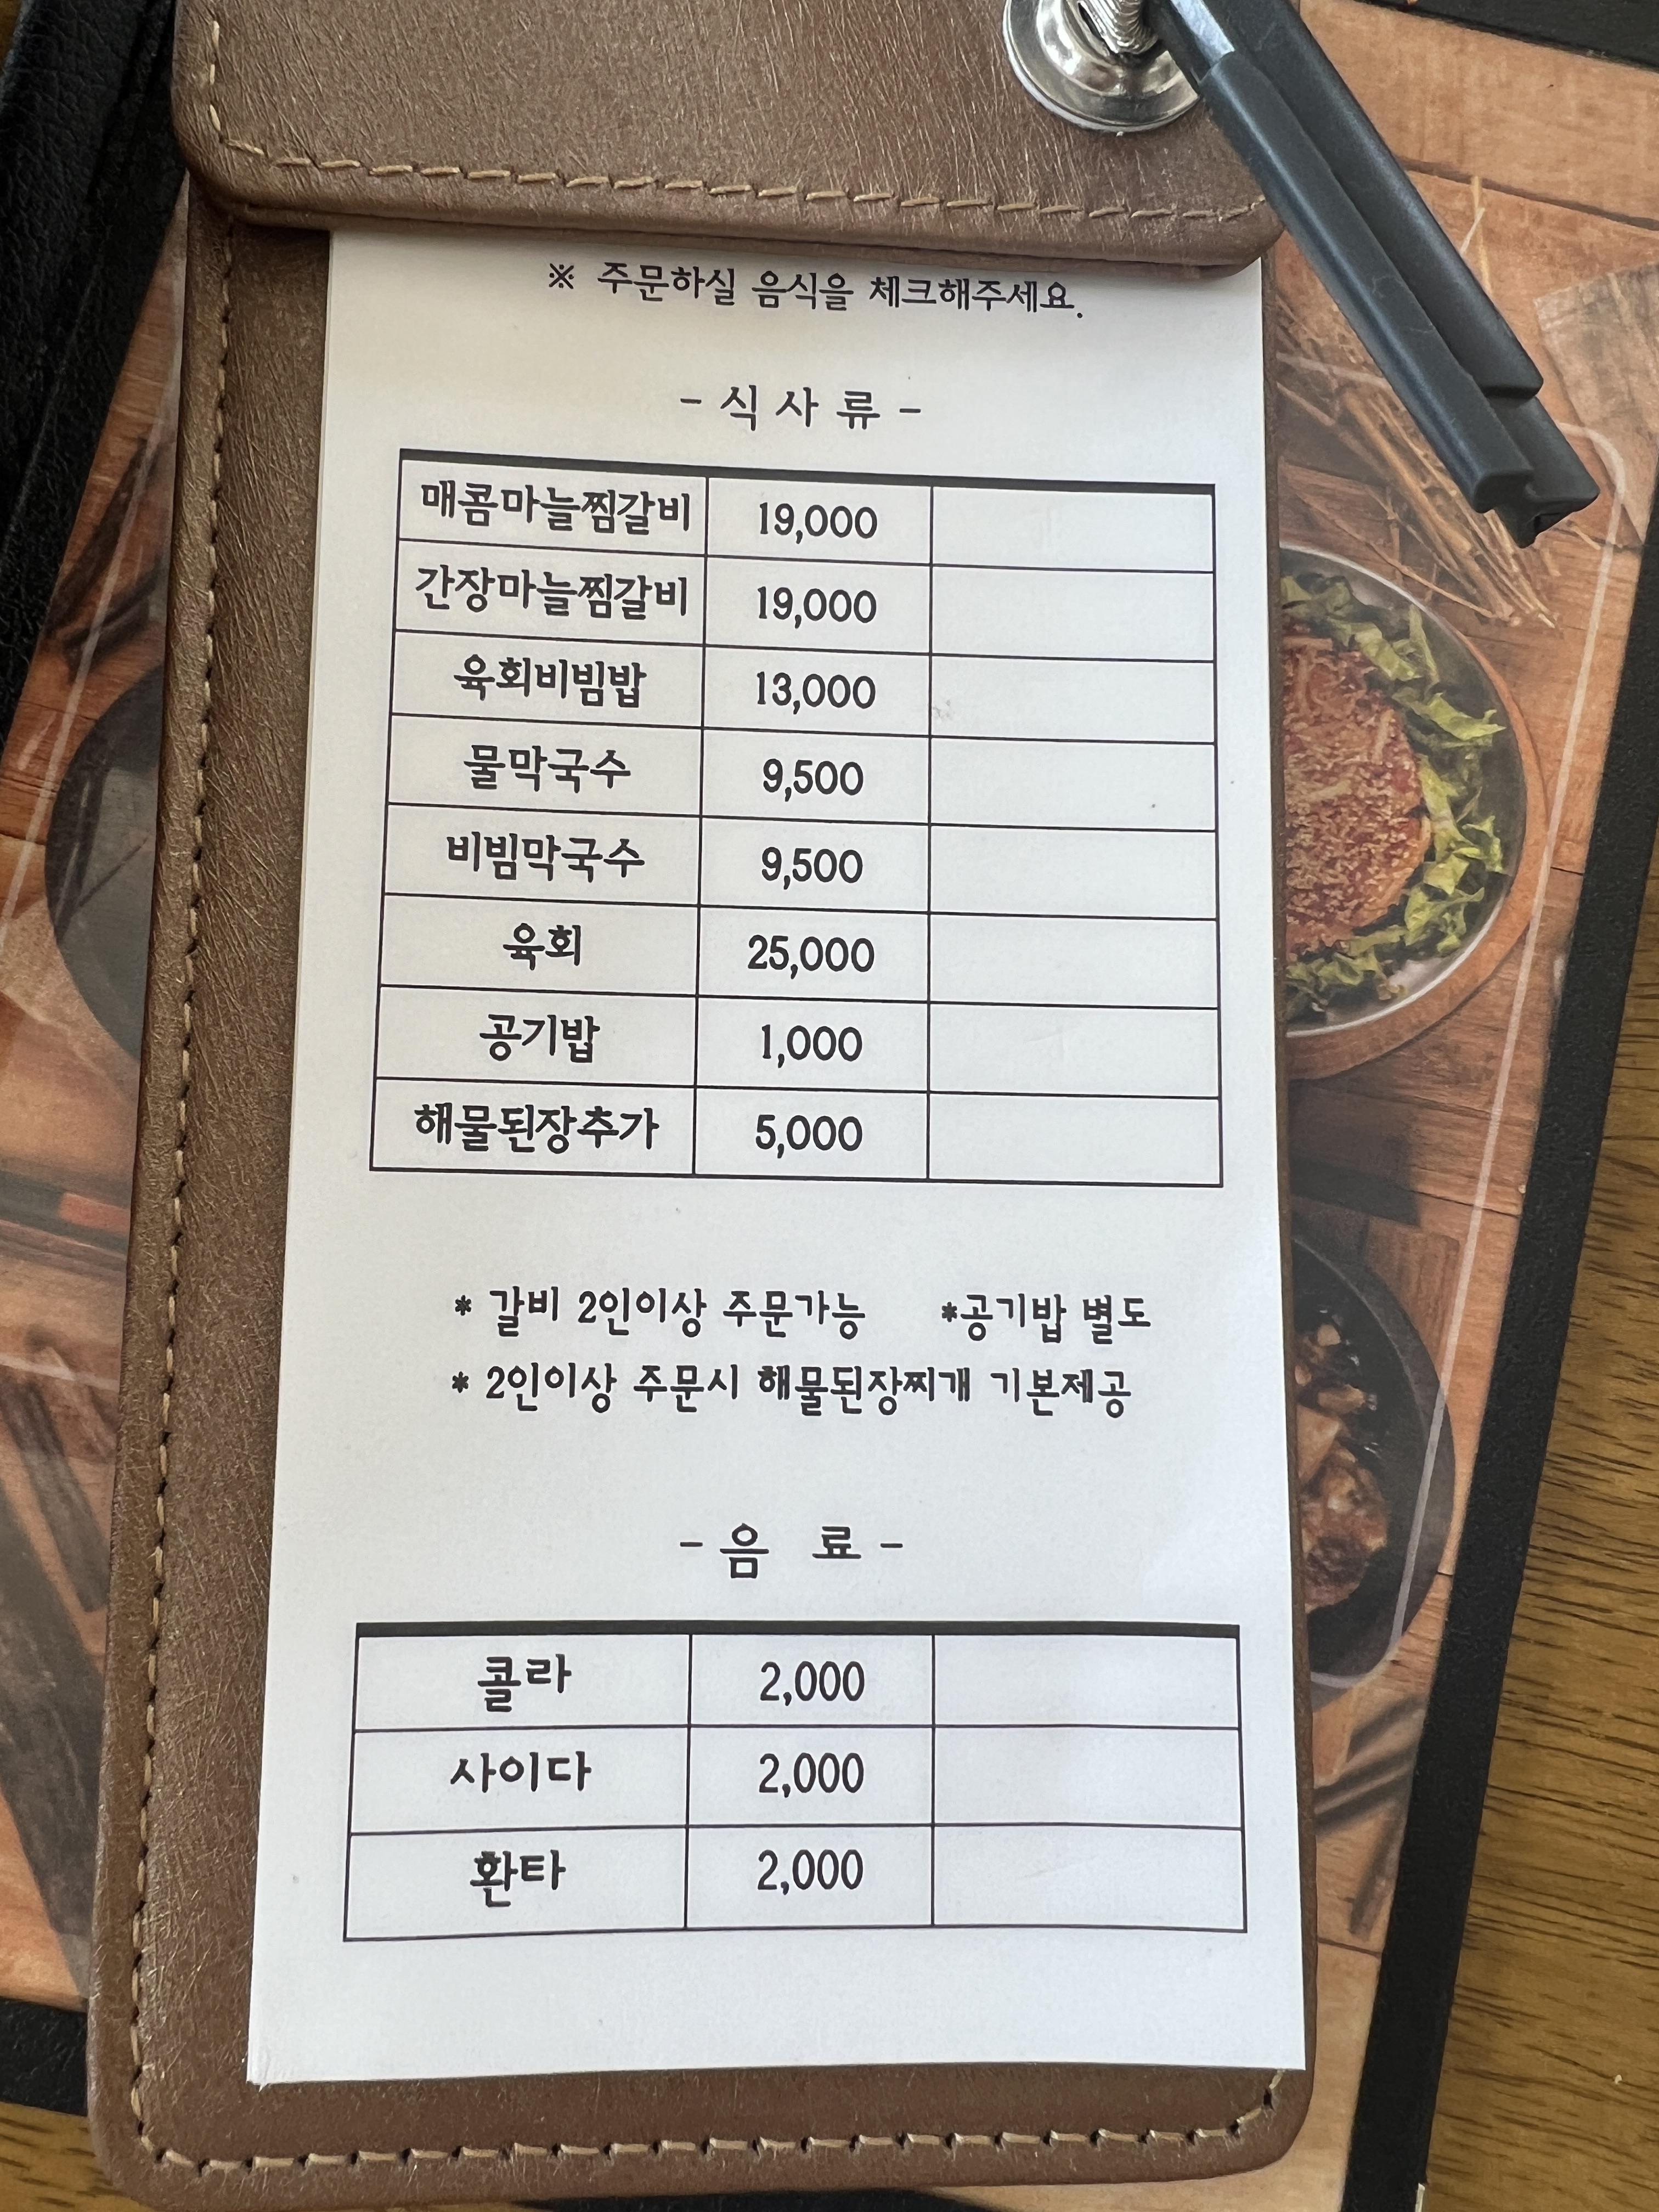 ※ 주문하실 음식을 체크해주세요.
- 식 사 류 -
매콤마늘찜갈비 19,000
간장마늘찜갈비 19,000
육회비빔밥 13,000
물막국수 9,500
비빔막국수 9,500
육회 25,000
공기밥 1,000
해물된장추가 5,000
* 갈비 2인이상 주문가능 *공기밥 별도
* 2인이상 주문시 해물된장찌개 기본제공
- 음 료 -
콜라 2,000
사이다 2,000
환타 2,000